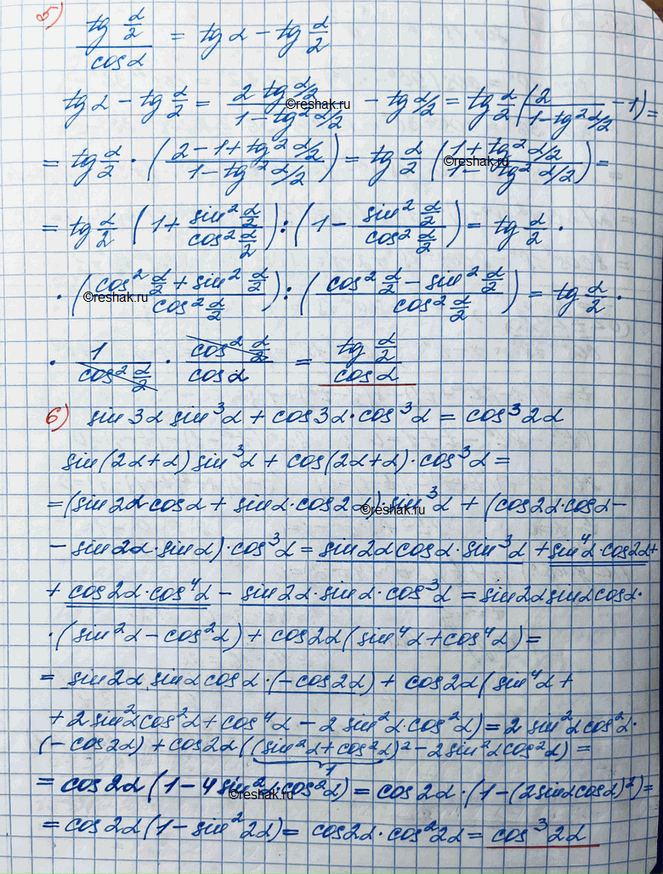 5) tg α/2 / cosα = tgα − tg α/2
tgα − tg α/2 = 2 tg α/2 / 1 − tg² α/2 − tg α/2 = tg α/2 (2 / 1 − tg² α/2 − 1) =
= tg α/2 · (2 − 1 + tg² α/2 / 1 − tg² α/2) = tg α/2 (1 + tg² α/2 / 1 − tg² α/2) =
= tg α/2 (1 + sin² α/2 / cos² α/2) : (1 − sin² α/2 / cos² α/2) = tg α/2 ·
· (cos² α/2 + sin² α/2 / cos² α/2) : (cos² α/2 − sin² α/2 / cos² α/2) = tg α/2 ·
· 1 / cos² α/2 · cos² α/2 / cosα = tg α/2 / cosα
6) sin3α sin³α + cos3α · cos³α = cos³2α
sin(2α+α) sin³α + cos(2α+α) · cos³α =
= (sin2α · cosα + sinα · cos2α) · sin³α + (cos2α · cosα −
− sin2α · sinα) · cos³α = sin2α cosα · sin³α + sin⁴α · cos2α +
+ cos2α · cos⁴α − sin2α · sinα · cos³α = sin2α sinα cosα ·
· (sin²α − cos²α) + cos2α (sin⁴α + cos⁴α) =
= sin2α sinα cosα · (−cos2α) + cos2α (sin⁴α +
+ 2 sin²α cos²α + cos⁴α − 2 sin²α · cos²α) = 2 sin²α cos²α ·
(−cos2α) + cos2α ((sin²α + cos²α)² − 2 sin²α cos²α) =
1
= cos2α (1 − 4 sin²α · cos²α) = cos2α · (1 − (2 sinα cosα)²) =
= cos2α (1 − sin²2α) = cos2α · cos²2α = cos³2α
©reshak.ru
©reshak.ru
©reshak.ru
©reshak.ru
©reshak.ru